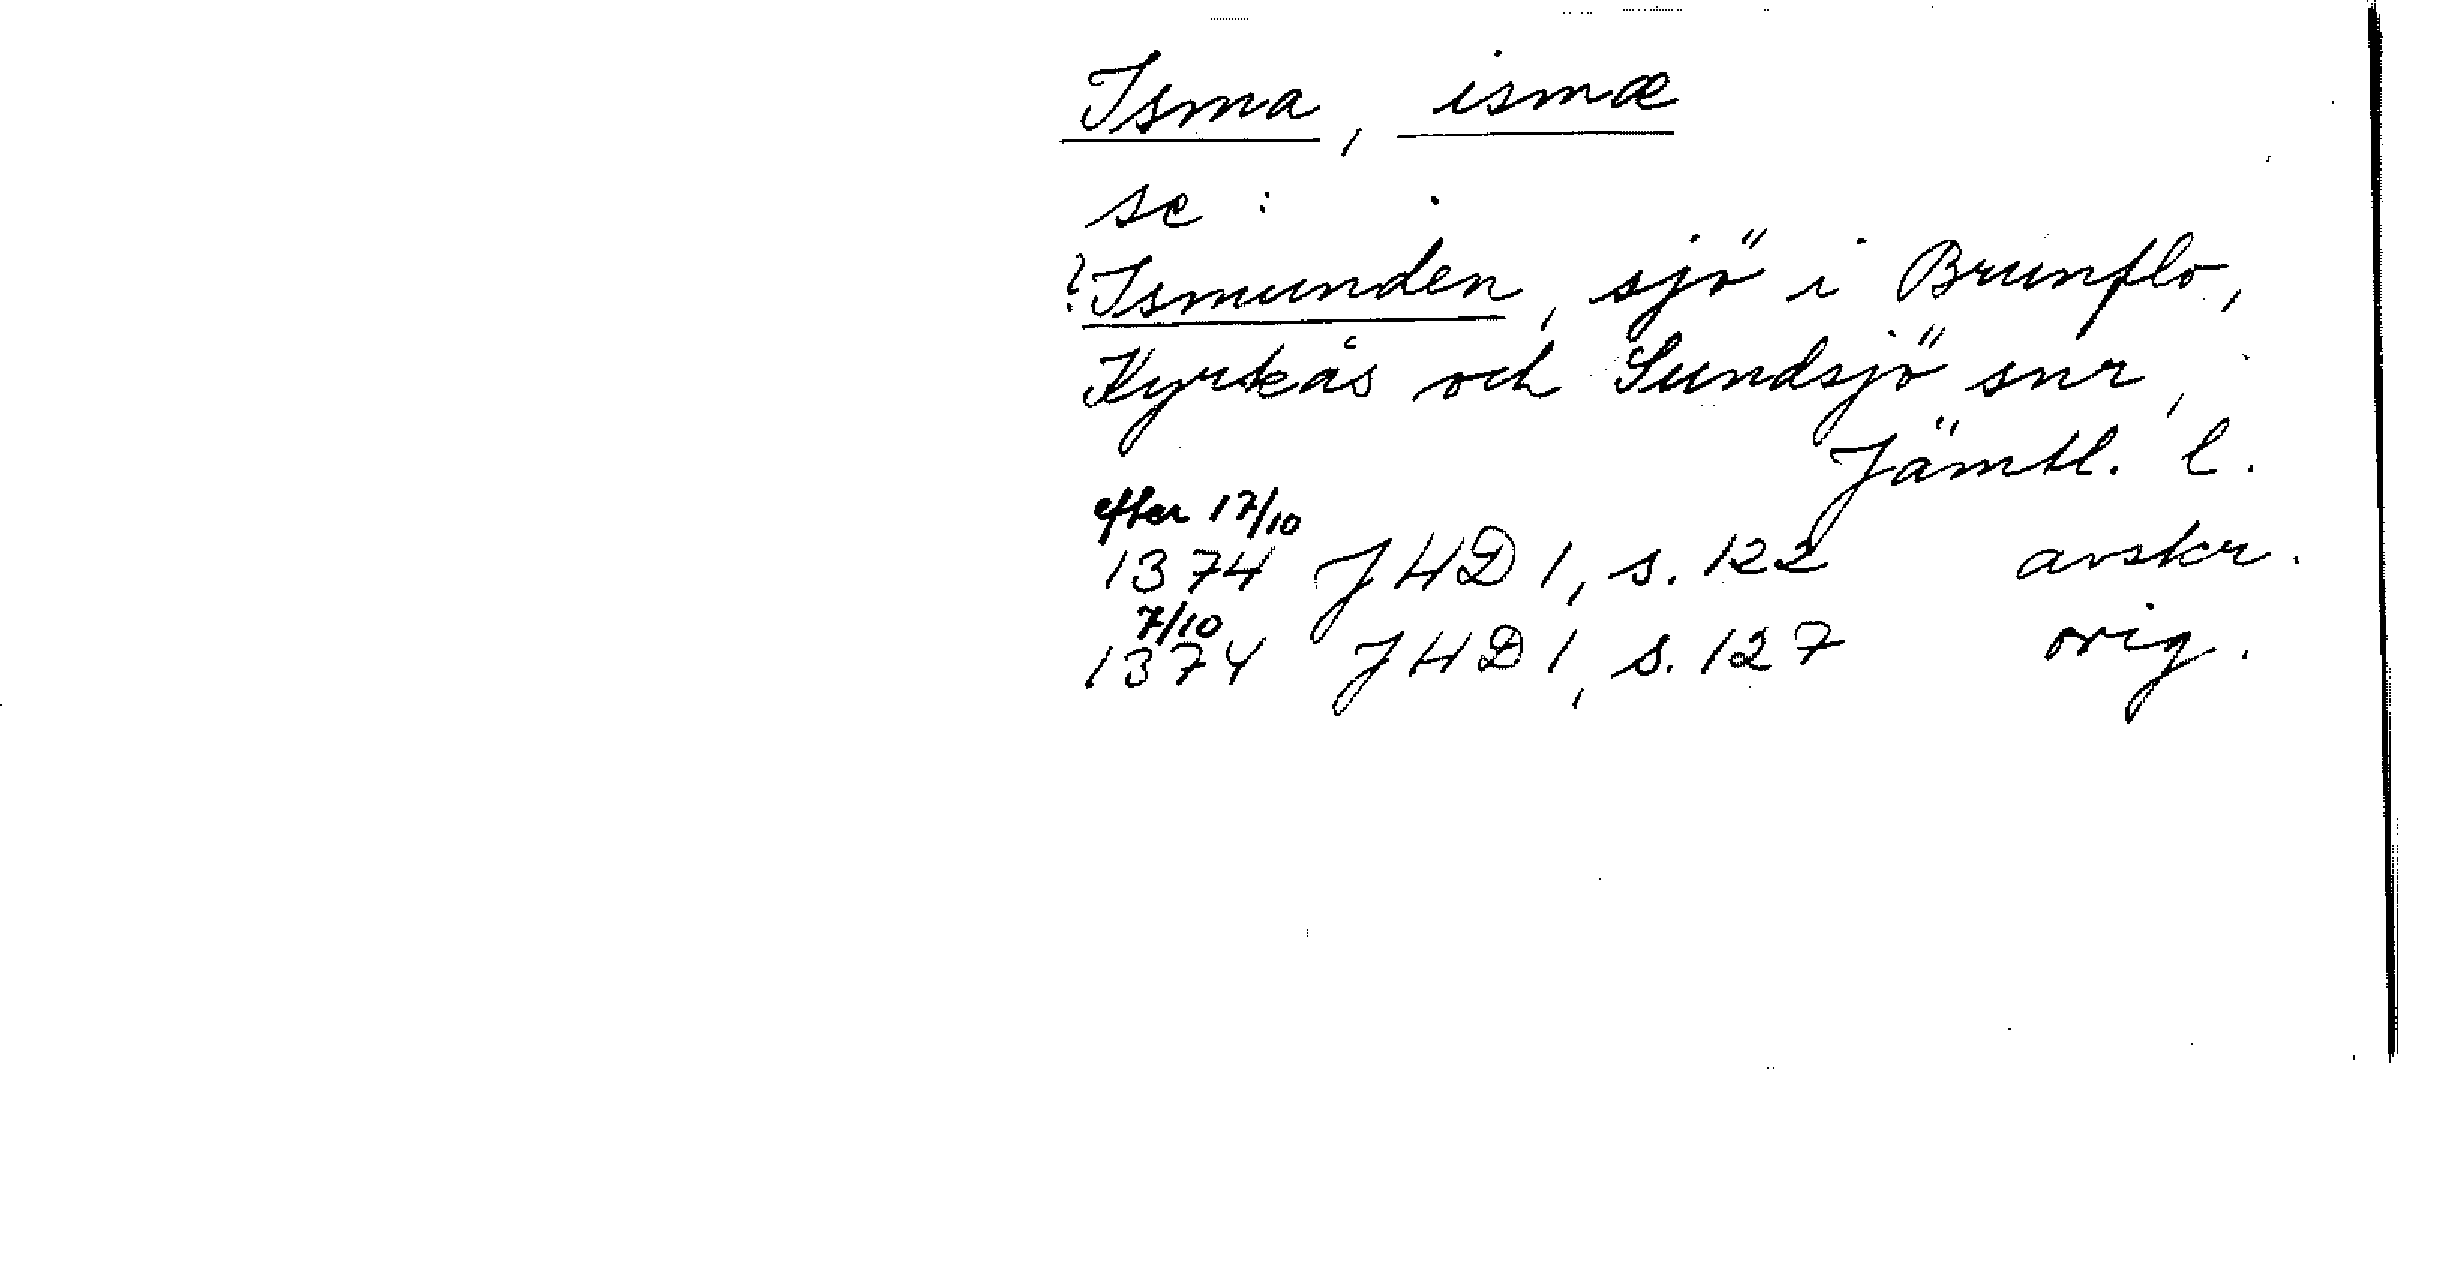 Isma, ismæ
se :
?Ismunden, sjö i Brunflo,
Kyrkås och Sundsjö snr,
Jämtl. l.
efter 17/10
1374 JHD 1, s. 122 avskr.
7/10
1374 JHD 1, s. 127 orig.